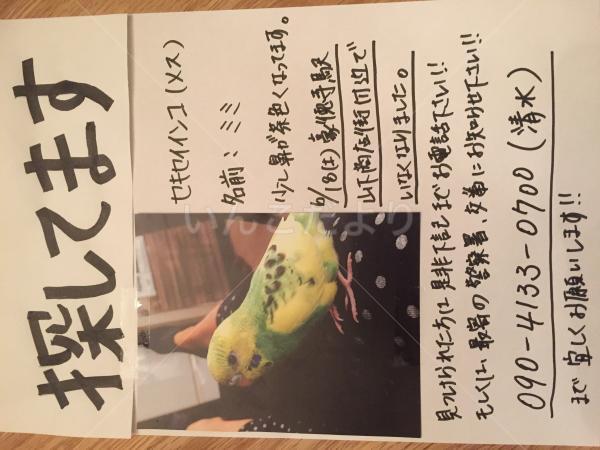 探してます
セキセイインコ (メス)
名前: ミミ
少し鼻が茶色くなってます。
6/18(土) 豪徳寺駅
山下商店街周辺で
いなくなりました。
見つけられた方は是非下記までお電話下さい!!
もしくは、最寄の警察署、交番にお知らせ下さい!!
090-4133-0700 (清水)
まで宜しくお願いします!!
いんこだより